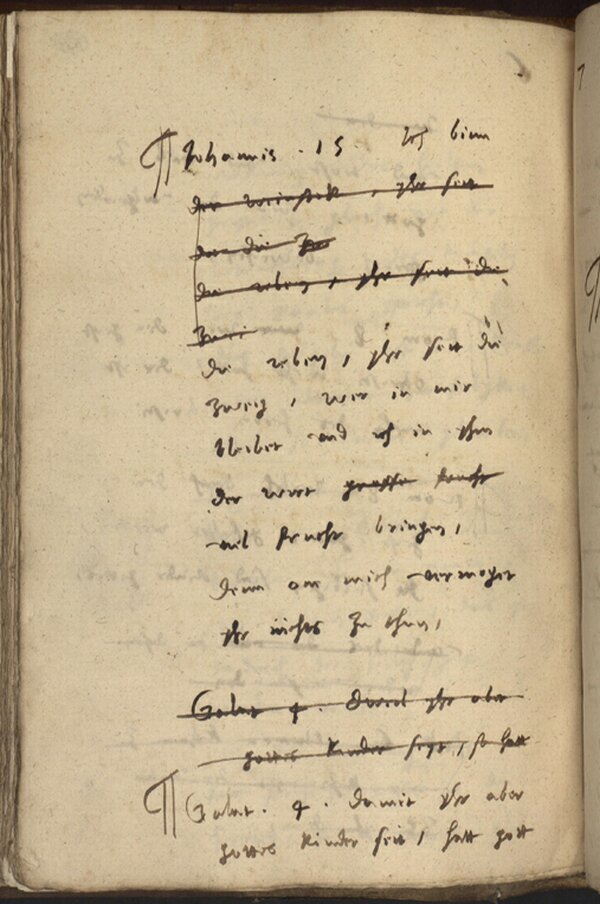 ¶ Johannis . 15 . Ich binn
der weinstok, yhr seit
die
die reben, yhr seit die
zwei
die reben, yhr seit die
zweig, wer in mir
bleibet und ich in yhm
der wirt grosse frucht
vil frucht bringen,
denn on mich vermoget
yhr nichts zu thun,
Galat 4 . Dweil yhr aber
gottes kinder seyt, so hatt
¶ Galat . 4 . damit yhr aber
gottes kinder seit, hatt gott